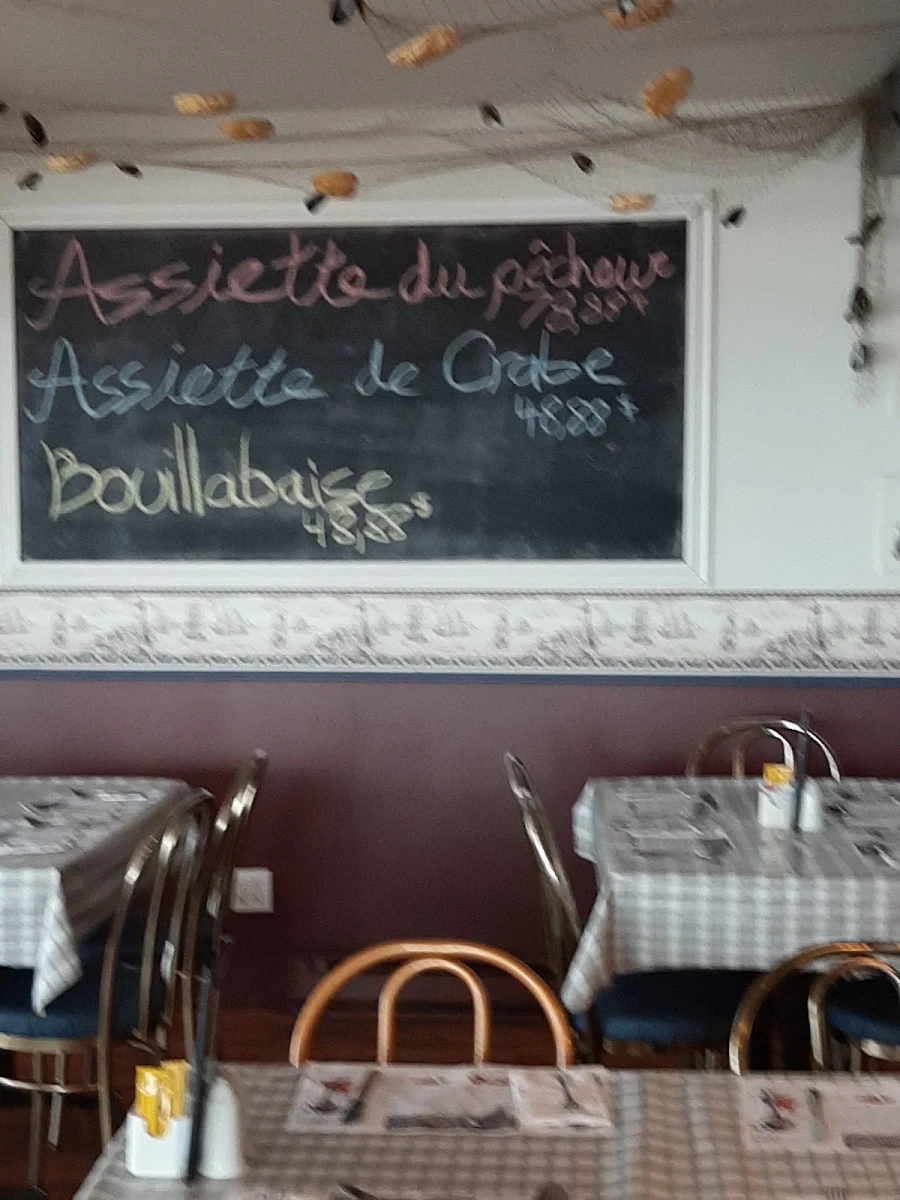 Assiette du pêcheur
Assiette de Crabe
48,88$
Bouillabaise
48,88$